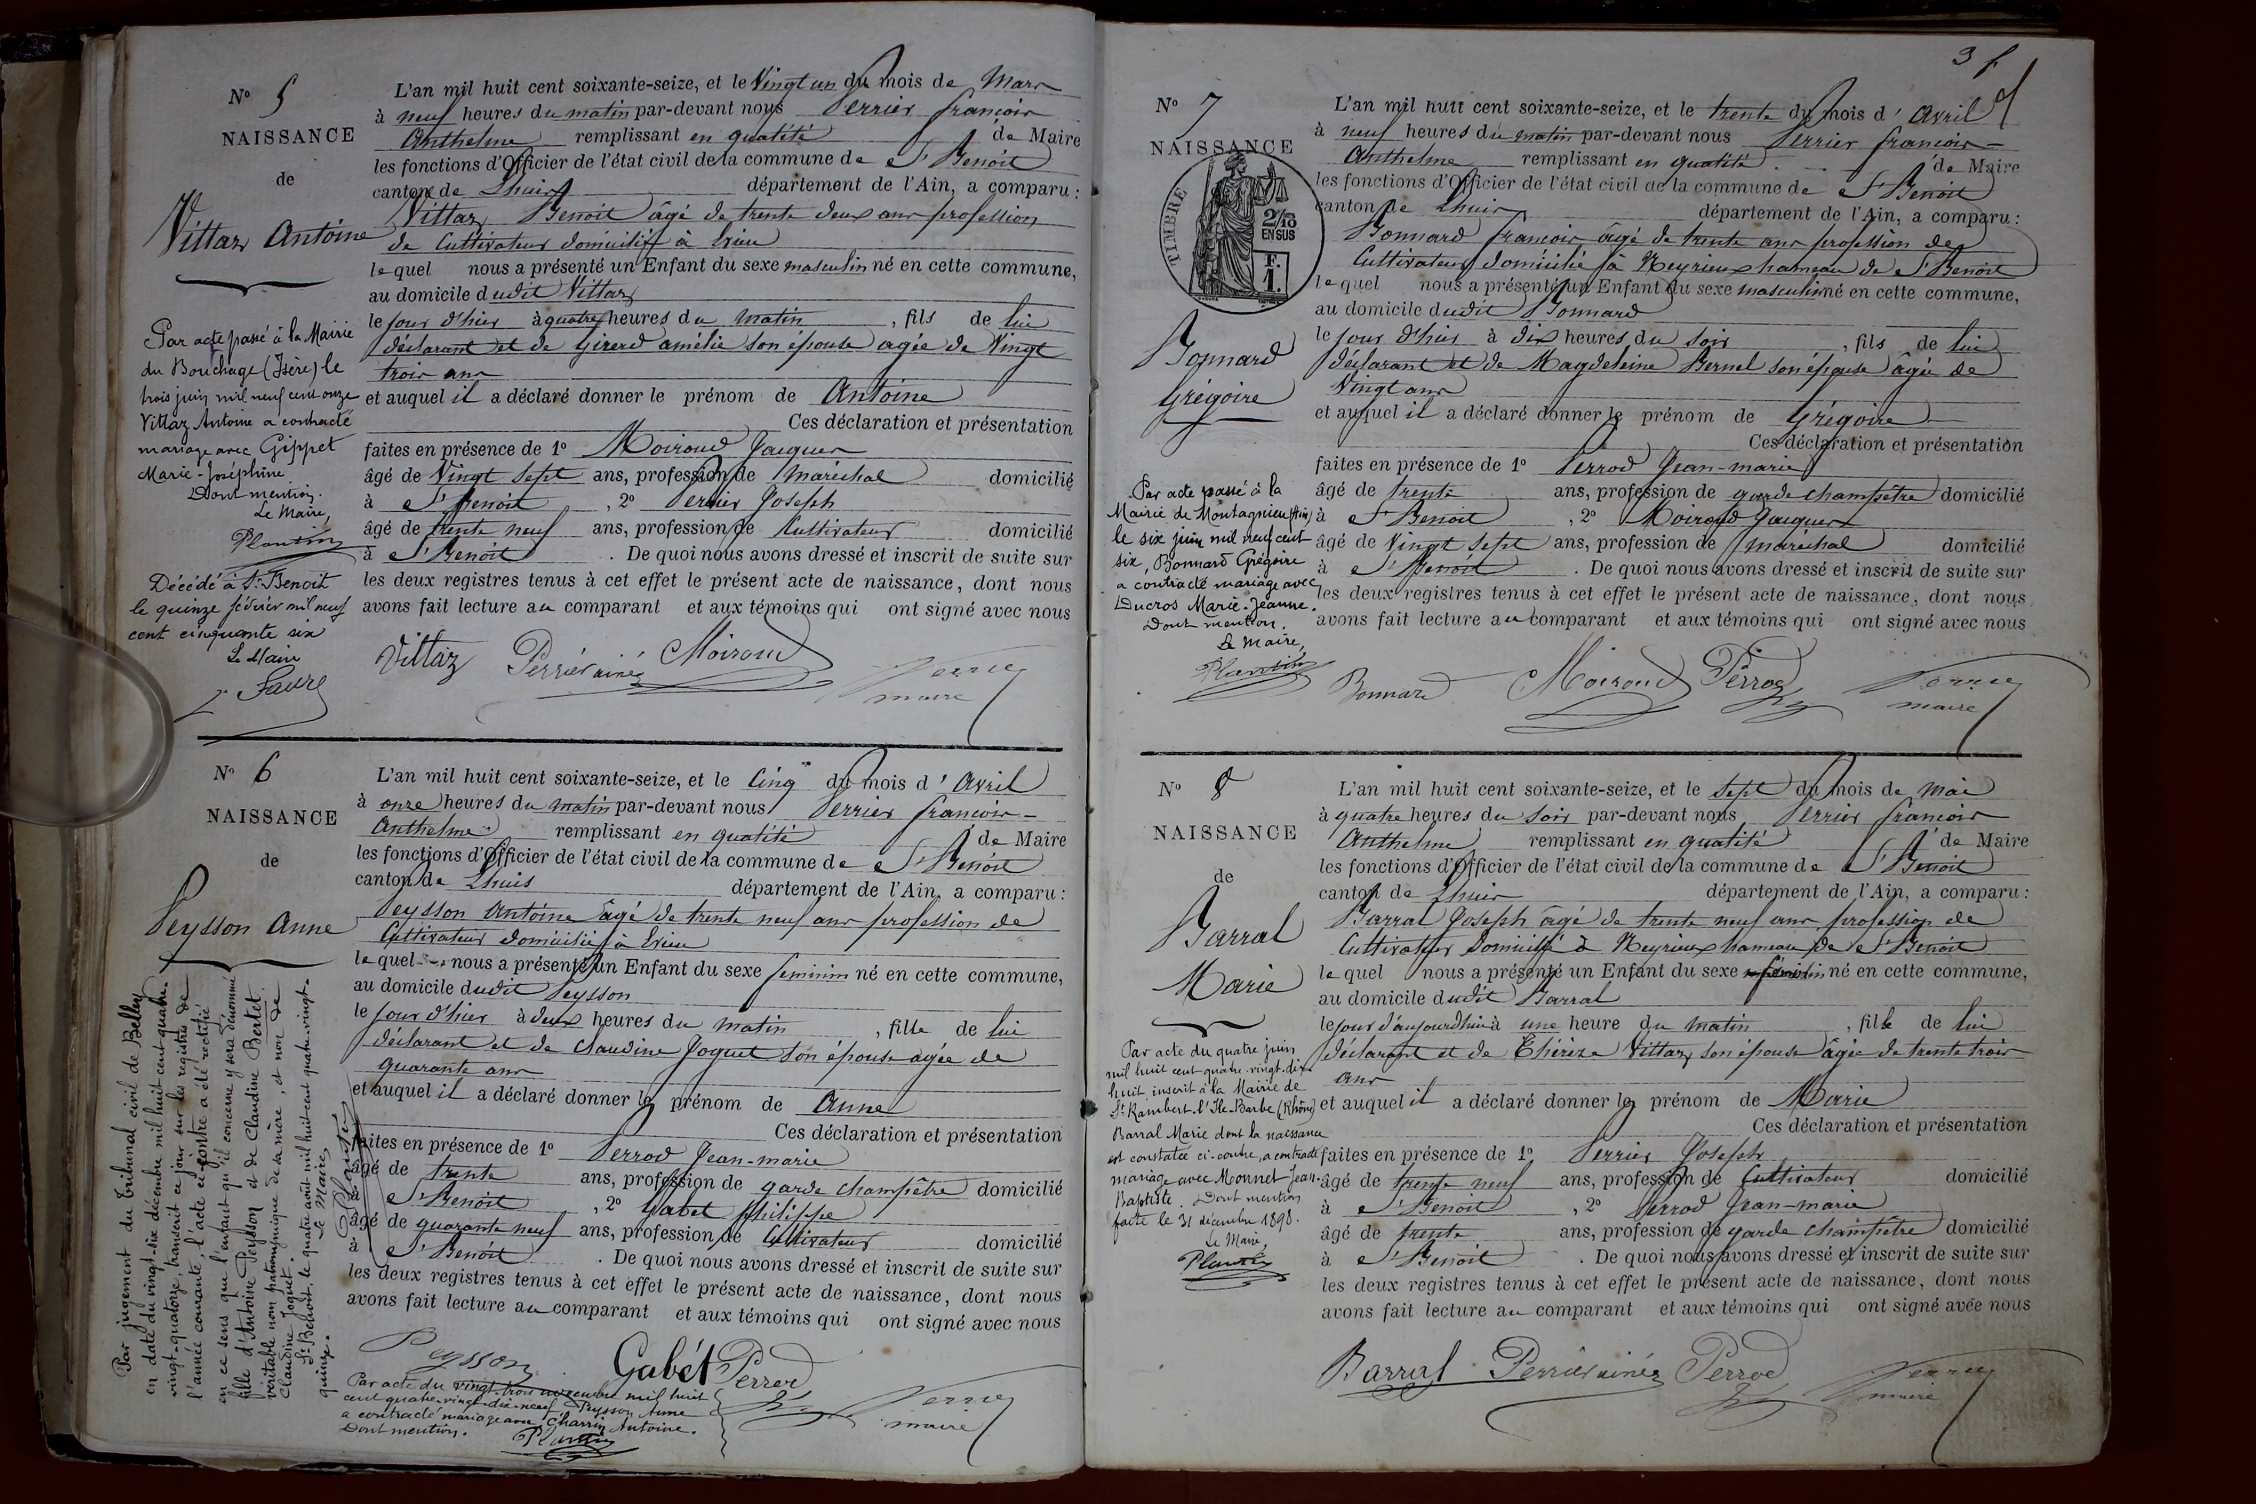 N° 5
NAISSANCE
de
Vittaz Antoine
L'an mil huit cent soixante-seize, et le Vingt un du mois de Mars
à neuf heures du matin par-devant nous Perrier françois
Anthelme remplissant en qualité de Maire
les fonctions d'Officier de l'état civil de la commune de St Benoit
canton de Lhuis département de l'Ain, a comparu :
Vittaz Benoit âgé de trente deux ans profession
de Cultivateur domicilié à
le quel nous a présenté un Enfant du sexe masculin né en cette commune,
au domicile dudit Vittaz
le jour d'hier à quatre heures du matin, fils de lui
déclarant et de Girerd amélie son épouse agée de Vingt
trois ans
et auquel il a déclaré donner le prénom de Antoine
Ces déclaration et présentation
faites en présence de 1° Moiroud Jacques
âgé de Vingt sept ans, profession de maréchal domicilié
à St Benoit, 2° Perrier Joseph
âgé de trente neuf ans, profession de Cultivateur domicilié
à St Benoit. De quoi nous avons dressé et inscrit de suite sur
les deux registres tenus à cet effet le présent acte de naissance, dont nous
avons fait lecture au comparant et aux témoins qui ont signé avec nous
Vittaz Perrier ainé Moiroud Perrier
maire
Par acte passé à la Mairie
du Bouchage (Isère) le
trois juin mil neuf cent onze
Vittaz Antoine a contracté
mariage avec Gippet
Marie-Joséphine.
Dont mention.
Le Maire,
Plantin
Décédé à St-Benoit
le quinze février mil neuf
cent cinquante six
Le Maire
Faure
N° 6
NAISSANCE
de
Peysson Anne
L'an mil huit cent soixante-seize, et le Cinq du mois d'Avril
à onze heures du matin par-devant nous Perrier françois
Anthelme remplissant en qualité de Maire
les fonctions d'Officier de l'état civil de la commune de St Benoit
canton de Lhuis département de l'Ain, a comparu :
Peysson Antoine âgé de trente neuf ans profession de
Cultivateur domicilié à
le quel nous a présenté un Enfant du sexe feminin né en cette commune,
au domicile dudit Peysson
le jour d'hier à deux heures du matin, fille de lui
déclarant et de Claudine Joguet son épouse agée de
quarante ans
et auquel il a déclaré donner le prénom de Anne
Ces déclaration et présentation
faites en présence de 1° Perrod Jean-marie
âgé de trente ans, profession de garde champêtre domicilié
à St Benoit, 2° Gabet philippe
âgé de quarante neuf ans, profession de Cultivateur domicilié
à St Benoit. De quoi nous avons dressé et inscrit de suite sur
les deux registres tenus à cet effet le présent acte de naissance, dont nous
avons fait lecture au comparant et aux témoins qui ont signé avec nous
Peysson Gabét Perrod Perrier
maire
Par jugement du Tribunal civil de Belley
en date du vingt-six décembre mil huit cent quatre-
vingt-quatorze, transcrit ce jour sur les registres de
l'année courante, l'acte ci-contre a été rectifié
en ce sens que l'enfant qu'il concerne y sera dénommé
fille d'Antoine Peysson et de Claudine Bertet,
véritable nom patronymique de sa mère, et non de
Claudine Joguet.
St Benoit, le quatre août mil huit cent quatre-vingt-
quinze.
Le Maire,
Plantin
Par acte du vingt-trois novembre mil huit
cent quatre-vingt-dix-neuf Peysson Anne
a contracté mariage avec Charrin Antoine.
Dont mention.
Plantin
3
N° 7
NAISSANCE
TIMBRE
2/10
EN SUS
F.
1.
Bonnard
Grégoire
L'an mil huit cent soixante-seize, et le trente du mois d'Avril
à neuf heures du matin par-devant nous Perrier françois
Anthelme remplissant en qualité de Maire
les fonctions d'Officier de l'état civil de la commune de St Benoit
canton de Lhuis département de l'Ain, a comparu :
Bonnard françois âgé de trente ans profession de
Cultivateur domicilié à Neyrieux hameau de St Benoit
le quel nous a présenté un Enfant du sexe masculin né en cette commune,
au domicile dudit Bonnard
le jour d'hier à dix heures du soir, fils de lui
déclarant et de Magdeleine Bernel son épouse âgée de
Vingt ans
et auquel il a déclaré donner le prénom de Grégoire
Ces déclaration et présentation
faites en présence de 1° Perrod Jean-marie
âgé de trente ans, profession de garde champêtre domicilié
à St Benoit, 2° Moiroud Jacques
âgé de Vingt sept ans, profession de maréchal domicilié
à St Benoit. De quoi nous avons dressé et inscrit de suite sur
les deux registres tenus à cet effet le présent acte de naissance, dont nous
avons fait lecture au comparant et aux témoins qui ont signé avec nous
Bonnard Moiroud Perrod Perrier
maire
Par acte passé à la
Mairie de Montagnieu (Ain)
le six juin mil neuf cent
six, Bonnard Grégoire
a contracté mariage avec
Ducros Marie-Jeanne.
Dont mention.
Le Maire,
Plantin
N° 8
NAISSANCE
de
Barral
Marie
L'an mil huit cent soixante-seize, et le sept du mois de Mai
à quatre heures du soir par-devant nous Perrier françois
Anthelme remplissant en qualité de Maire
les fonctions d'Officier de l'état civil de la commune de St Benoit
canton de Lhuis département de l'Ain, a comparu :
Barral Joseph âgé de trente neuf ans profession de
Cultivateur domicilié à Neyrieux hameau de St Benoit
le quel nous a présenté un Enfant du sexe né en cette commune,
au domicile dudit Barral
le jour d'aujourd'hui à une heure du matin, fille de lui
déclarant et de Thérèze Vittaz son épouse âgée de trente trois
ans
et auquel il a déclaré donner le prénom de Marie
Ces déclaration et présentation
faites en présence de 1° Perrier Joseph
âgé de trente neuf ans, profession de Cultivateur domicilié
à St Benoit, 2° Perrod Jean-marie
âgé de trente ans, profession de garde champêtre domicilié
à St Benoit. De quoi nous avons dressé et inscrit de suite sur
les deux registres tenus à cet effet le présent acte de naissance, dont nous
avons fait lecture au comparant et aux témoins qui ont signé avec nous
Barral Perrier ainé Perrod Perrier
maire
Par acte du quatre juin
mil huit cent quatre-vingt-dix-
huit, inscrit à la Mairie de
St Rambert-l'Ile-Barbe (Rhône)
Barral Marie dont la naissance
est constatée ci-contre, a contracté
mariage avec Monnet Jean-
Baptiste. Dont mention
faite le 31 décembre 1898.
Le Maire,
Plantin